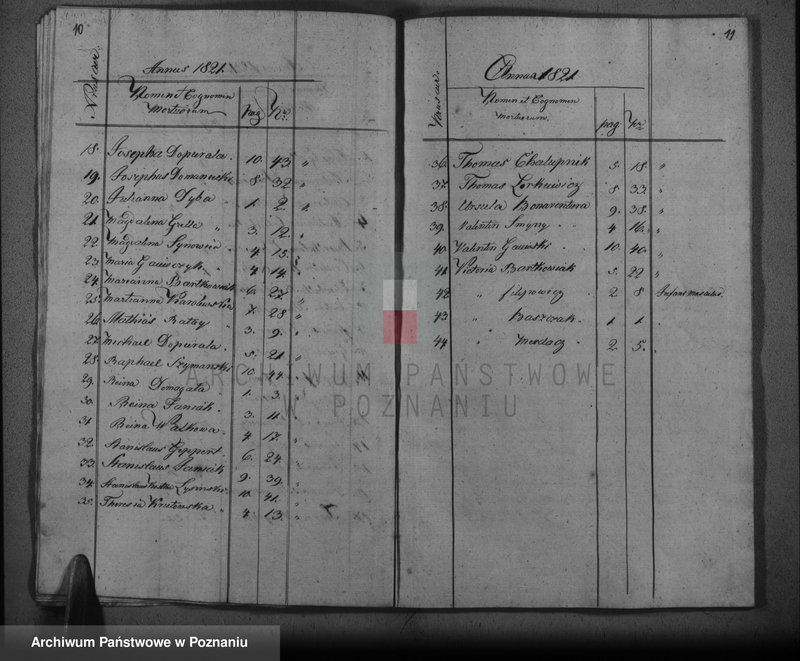 10
Annus 1821.
Nomen et Cognomen
Mortuorum
pag Nr.
18. Josepha Dopurala. 10. 43. "
19. Josephus Domanuski 8. 32. "
20. Julianna Dyba. 1. 2. "
21. Magdalina " 3. 12.
22. Magdalina 4 15.
23. Maria 4 14.
24. Marianna Bartkowiak 6. 27
25. Marianna Karolewska 7. 28
26. Mathias Batby 3. 9.
27. Michael Dopurala. 5. 21
28. Raphael Szymanski 10. 44
29. Reina Domagała. 1. 3.
30. Reina Janiak. 3. 11.
31. Reina Walkowa. 4 17.
32. Stanislaus Geppert. 6. 24.
33. Stanislaus Janiak 9. 39.
34. Stanislaus Kostka 10. 41.
35. Theresia " 4. 13.
11
Annus 1821
Nomen et Cognomen
Mortuorum.
pag. Nr
36. Thomas Chalupnik 5. 18. "
37. Thomas 8. 33. "
38. Ursula Bonarentura 9. 38. "
39. Valentin Smyry. 4 16. "
40. Valentin 10. 40. "
41. Victoria Bartkowiak 5. 22 "
42 " 2 8 Infans masculus.
43 " Baszczak. 1. 1. "
44 " 2. 5.
ARCHIWUM PAŃSTWOWE
W POZNANIU
Archiwum Państwowe w Poznaniu